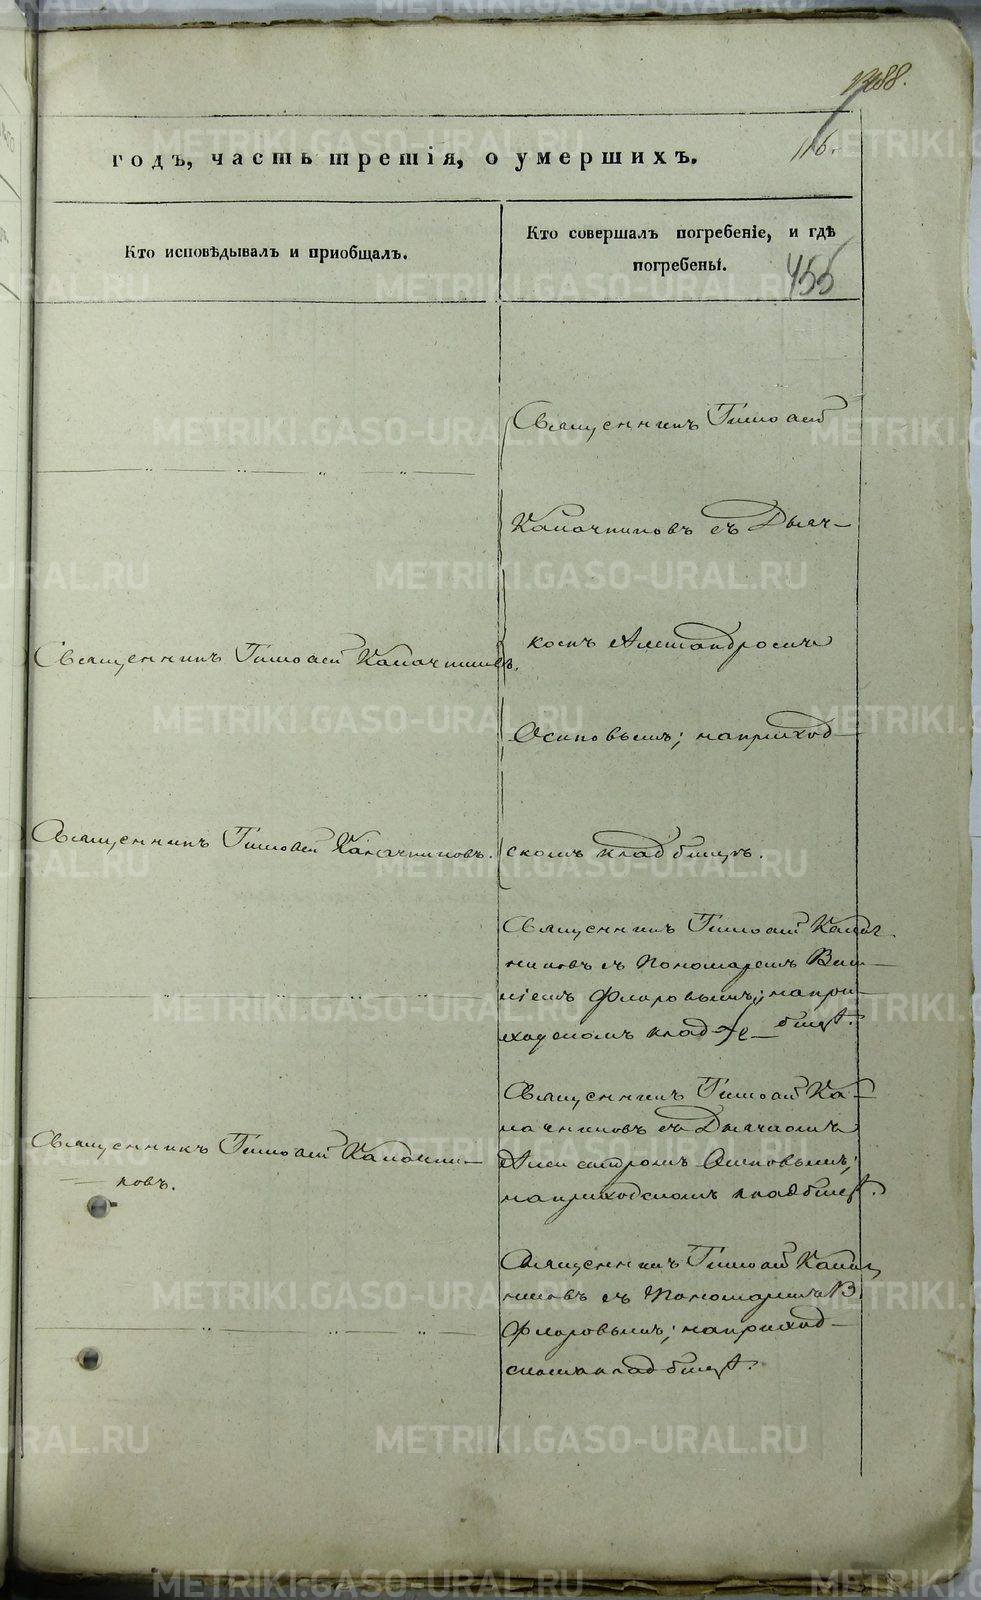 1188.
116.
годъ, часть третія, о умершихъ.
Кто исповѣдывалъ и приобщалъ.
Кто совершалъ погребеніе, и гдѣ
погребены.
455
Священникъ Тимоѳей
Калачниковъ съ Дьяч-
комъ Александромъ
Осиповымъ; на приход-
скомъ кладбищѣ.
Священникъ Тимоѳей Калачниковъ.
Священникъ Тимоѳей Калачниковъ.
Священникъ Тимоѳей Калач
никовъ съ Пономаремъ Васи-
ліемъ Флоровымъ; на при-
ходскомъ кладбищѣ.
Священникъ Тимоѳей Ка-
лачниковъ съ Дьячкомъ
Александромъ Осиповымъ;
на приходскомъ кладбищѣ.
Священникъ Тимоѳей Калачни-
ковъ.
Священникъ Тимоѳей Калач
никовъ съ Пономаремъ В.
Флоровымъ; на приход-
скомъ кладбищѣ.
METRIKI.GASO-URAL.RU